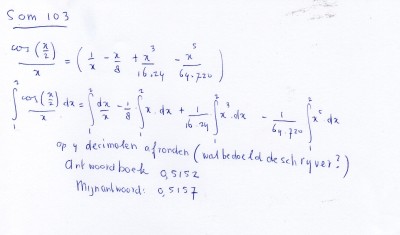 Som 103
cos(x/2)/x = (1/x - x/8 + x^3/16.24 - x^5/64.720)
∫_1^2 cos(x/2)/x dx = ∫_1^2 dx/x - 1/8 ∫_1^2 x.dx + 1/16.24 ∫_1^2 x^3.dx - 1/64.720 ∫_1^2 x^5.dx
op 4 decimalen afronden (wat bedoeld de schryver?)
Antwoordboek 0,5152
Mijn antwoord: 0,5157